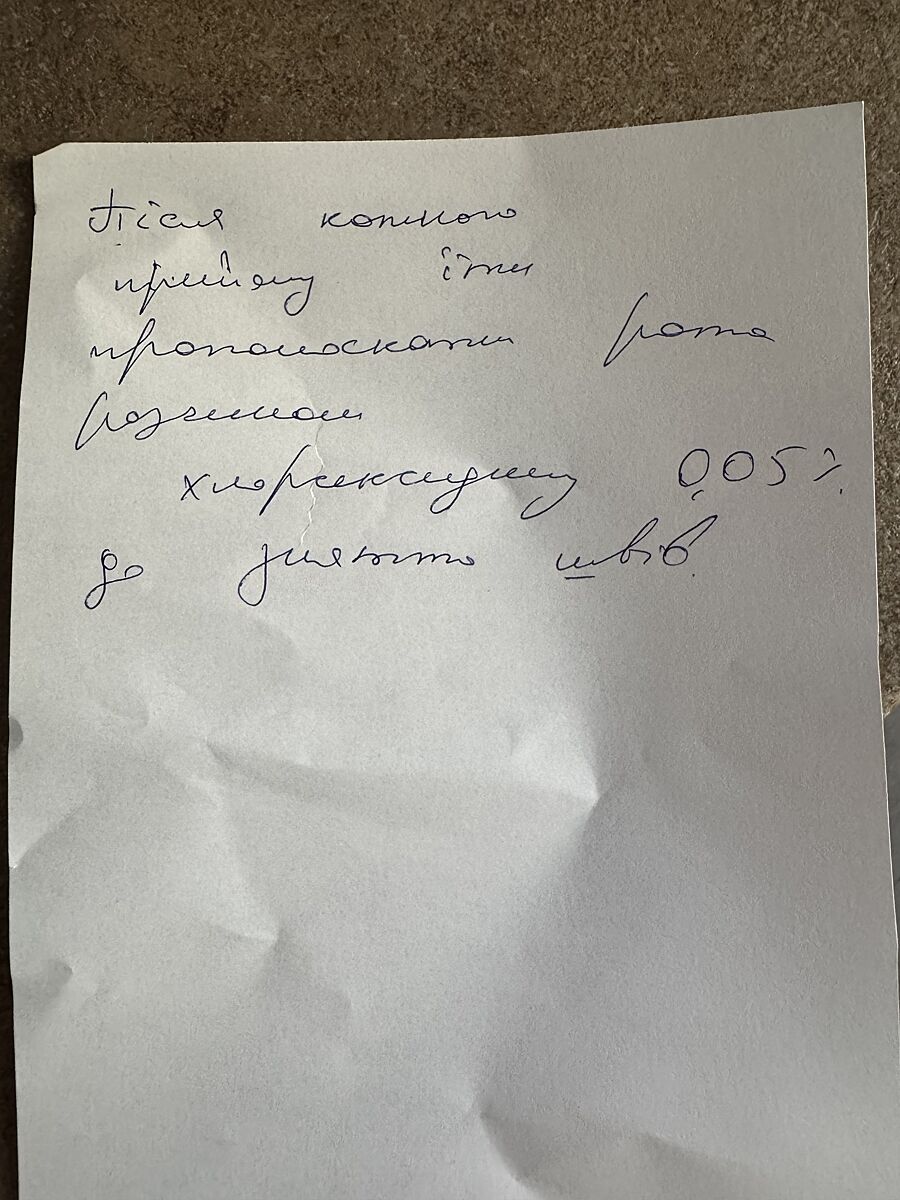 Після кожного
прийому їжи
прополоскати рота
розчином
хлоргексидину 0,05%
до зняття швів